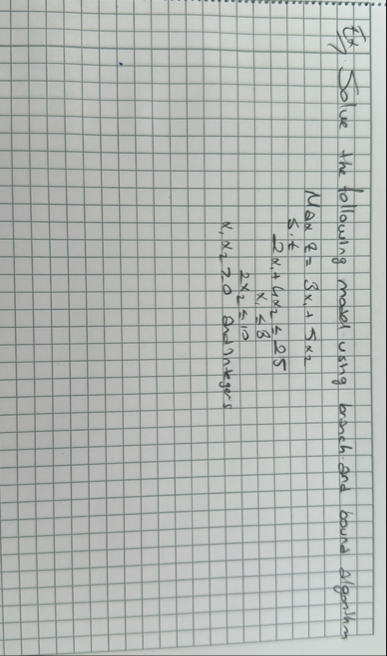 Ex/ Solve the following model using branch and bound algorithm
Max Z = 3x₁ + 5x₂
s.t
2x₁ + 4x₂ ≤ 25
x₁ ≤ 8
2x₂ ≤ 10
x₁, x₂ ≥ 0 and integers